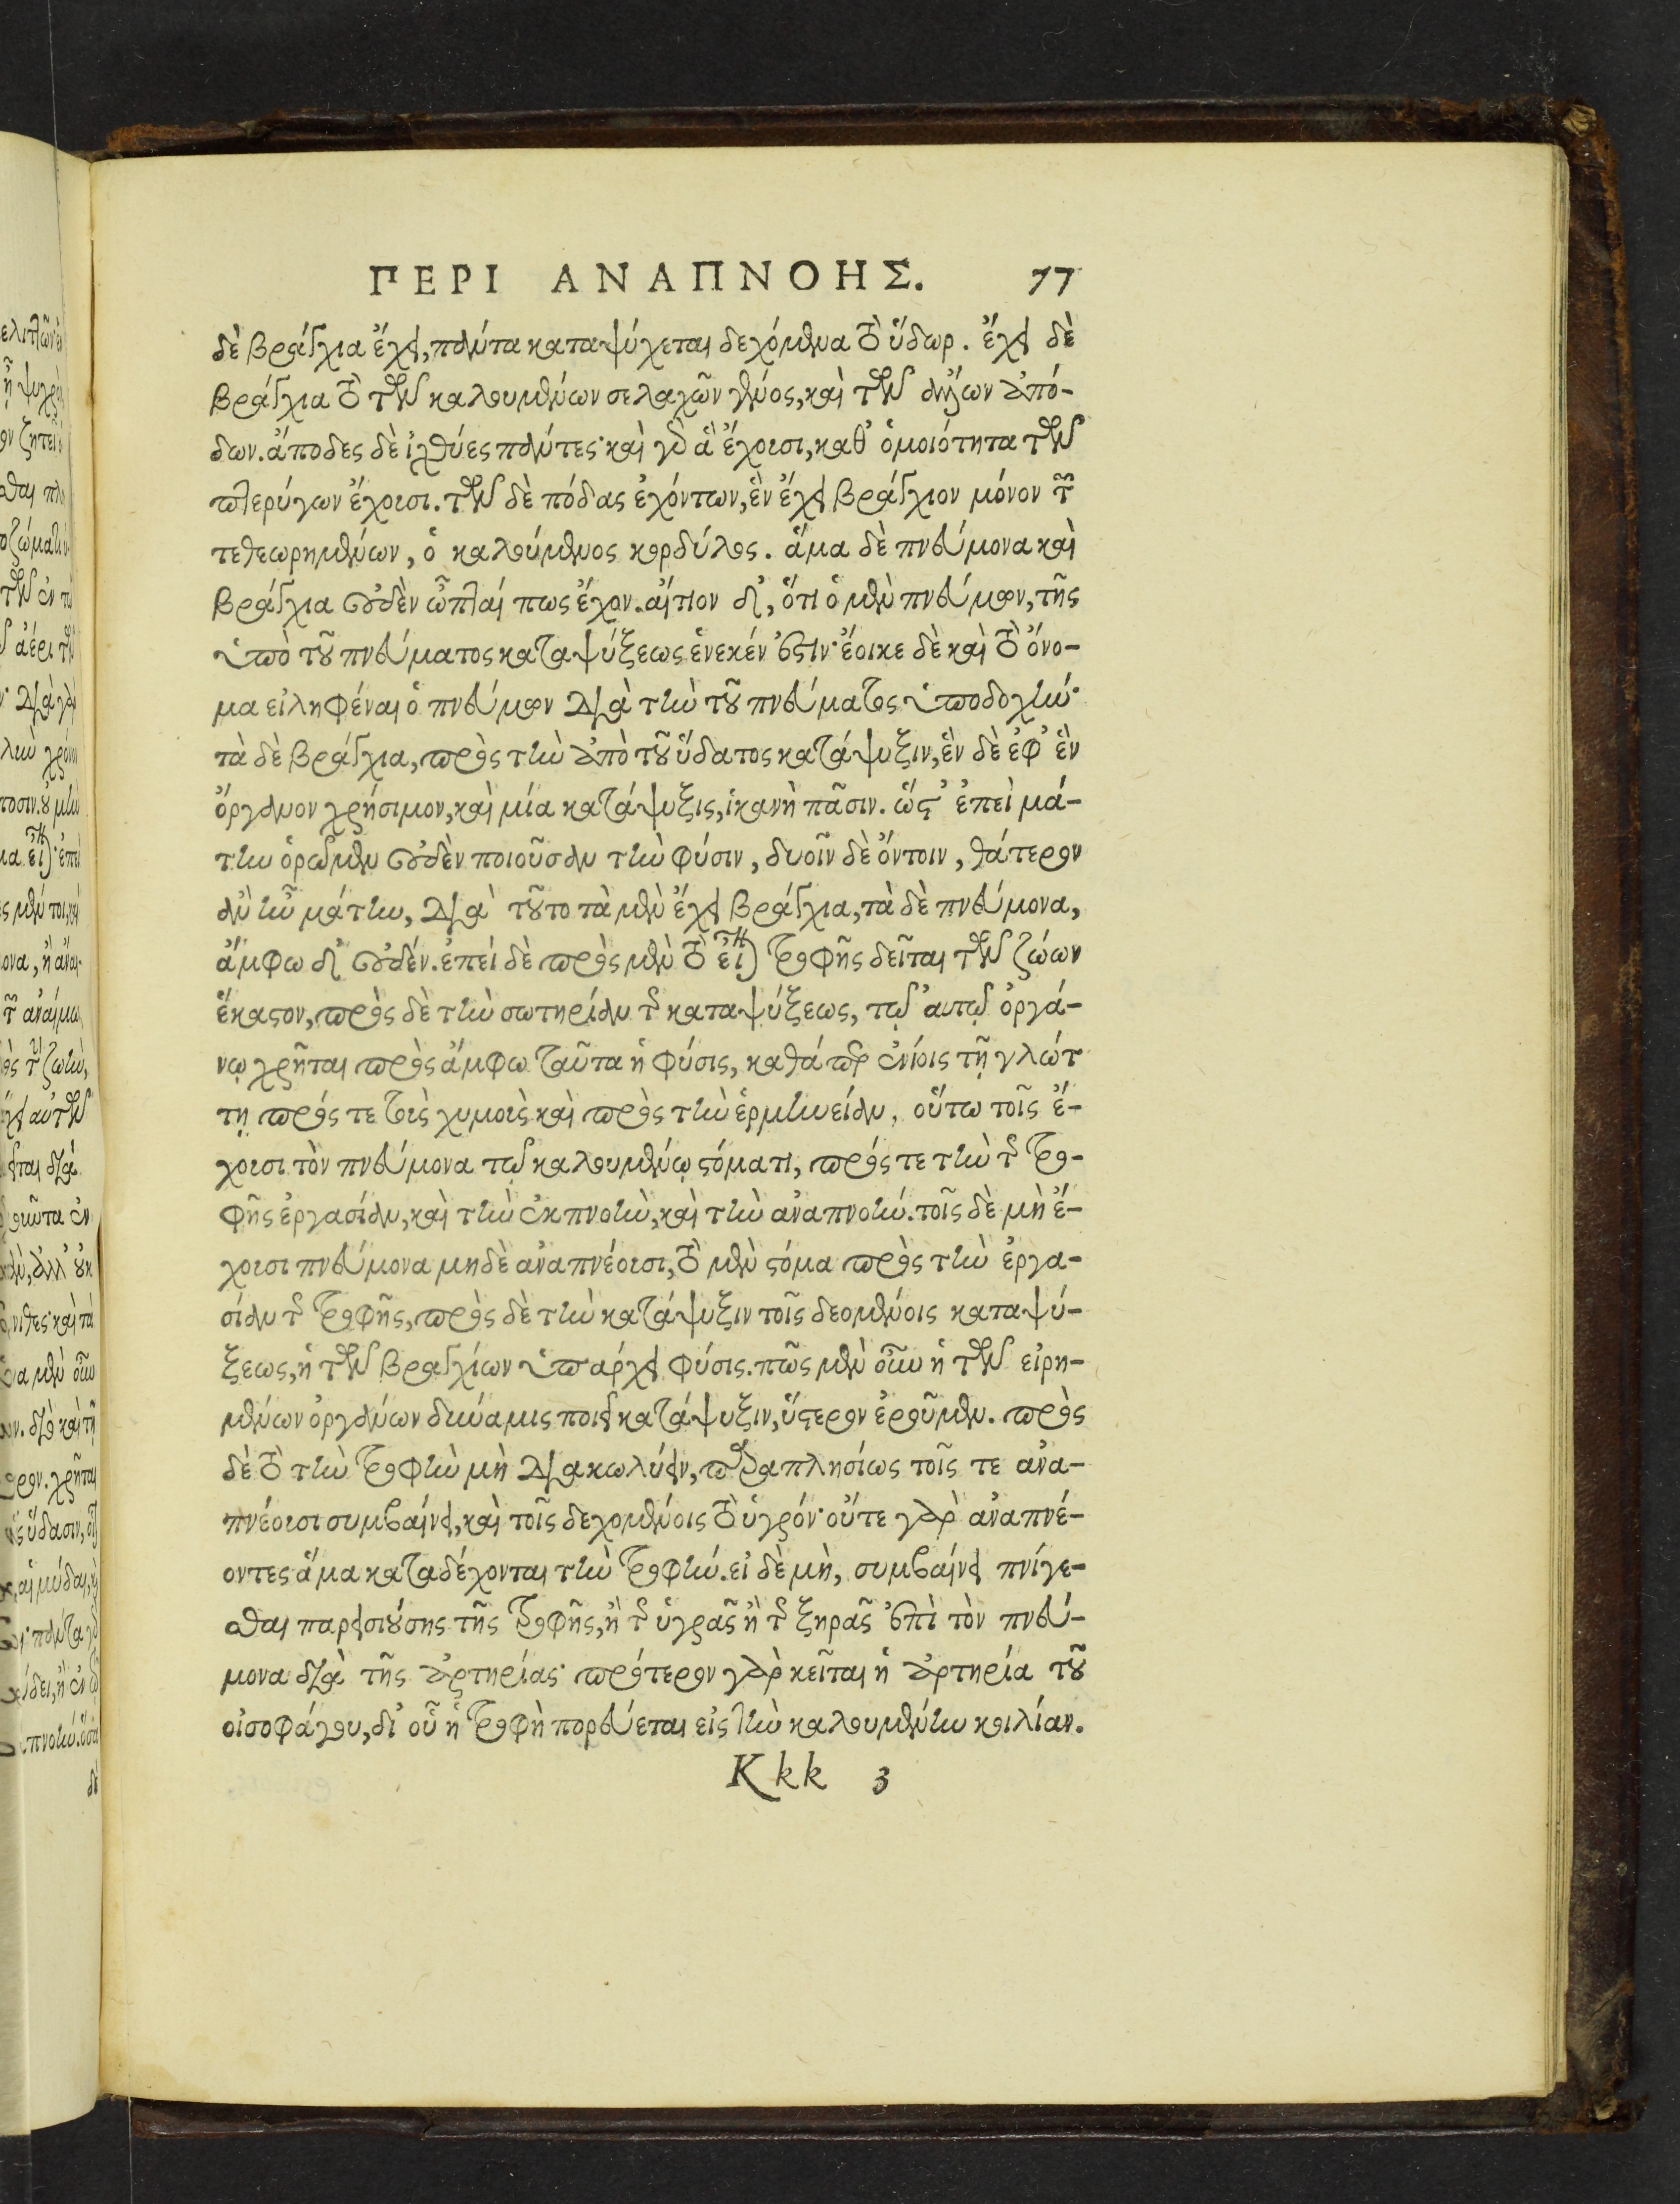 ΠΕΡΙ ΑΝΑΠΝΟΗΣ. 77
δὲ βράγχια ἔχει, πάντα καταψύχεται δεχόμενα τὸ ὕδωρ. ἔχει δὲ
βράγχια τὸ τῶν καλουμένων σελαχῶν γένος, καὶ τῶν ἄλλων ἀπό-
δων. ἄποδες δὲ ἰχθύες πάντες· καὶ γὰρ ἃ ἔχουσι, καθ᾽ ὁμοιότητα τῶν
πτερύγων ἔχουσι. τῶν δὲ πόδας ἐχόντων, ἓν ἔχει βράγχιον μόνον τῶν
τεθεωρημένων, ὁ καλούμενος κορδύλος. ἅμα δὲ πνεύμονα καὶ
βράγχια οὐδὲν ὦπταί πως ἔχον. αἴτιον δ᾽, ὅτι ὁ μὲν πνεύμων, τῆς
ὑπὸ τοῦ πνεύματος καταψύξεως ἕνεκέν ἐστιν· ἔοικε δὲ καὶ τὸ ὄνο-
μα εἰληφέναι ὁ πνεύμων διὰ τὴν τοῦ πνεύματος ὑποδοχήν·
τὰ δὲ βράγχια, πρὸς τὴν ἀπὸ τοῦ ὕδατος κατάψυξιν, ἓν δὲ ἐφ᾽ ἓν
ὄργανον χρήσιμον, καὶ μία κατάψυξις, ἱκανὴ πᾶσιν. ὥστ᾽ ἐπεὶ μά-
την ὁρῶμεν οὐδὲν ποιοῦσαν τὴν φύσιν, δυοῖν δὲ ὄντοιν, θάτερον
ἂν ἦν μάτην, διὰ τοῦτο τὰ μὲν ἔχει βράγχια, τὰ δὲ πνεύμονα,
ἄμφω δ᾽ οὐδέν. ἐπεὶ δὲ πρὸς μὲν τὸ εἶναι τροφῆς δεῖται τῶν ζώων
ἕκαστον, πρὸς δὲ τὴν σωτηρίαν τῆς καταψύξεως, τῷ αὐτῷ ὀργά-
νῳ χρῆται πρὸς ἄμφω ταῦτα ἡ φύσις, καθάπερ ἐνίοις τῇ γλώτ
τῃ πρός τε τοὺς χυμοὺς καὶ πρὸς τὴν ἑρμηνείαν, οὕτω τοῖς ἔ-
χουσι τὸν πνεύμονα τῷ καλουμένῳ στόματι, πρός τε τὴν τῆς τρο-
φῆς ἐργασίαν, καὶ τὴν ἐκπνοὴν, καὶ τὴν ἀναπνοήν. τοῖς δὲ μὴ ἔ-
χουσι πνεύμονα μηδὲ ἀναπνέουσι, τὸ μὲν στόμα πρὸς τὴν ἐργα-
σίαν τῆς τροφῆς, πρὸς δὲ τὴν κατάψυξιν τοῖς δεομένοις καταψύ-
ξεως, ἡ τῶν βραγχίων ὑπάρχει φύσις. πῶς μὲν οὖν ἡ τῶν εἰρη-
μένων ὀργάνων δύναμις ποιεῖ κατάψυξιν, ὕστερον ἐροῦμεν. πρὸς
δὲ τὸ τὴν τροφὴν μὴ διακωλύειν, παραπλησίως τοῖς τε ἀνα-
πνέουσι συμβαίνει, καὶ τοῖς δεχομένοις τὸ ὑγρόν· οὔτε γὰρ ἀναπνέ-
οντες ἅμα καταδέχονται τὴν τροφήν. εἰ δὲ μὴ, συμβαίνει πνίγε-
σθαι παρεισιούσης τῆς τροφῆς, ἢ τῆς ὑγρᾶς ἢ τῆς ξηρᾶς ἐπὶ τὸν πνεύ-
μονα διὰ τῆς ἀρτηρίας· πρότερον γὰρ κεῖται ἡ ἀρτηρία τοῦ
οἰσοφάγου, δι᾽ οὗ ἡ τροφὴ πορεύεται εἰς τὴν καλουμένην κοιλίαν.
Kkk 3